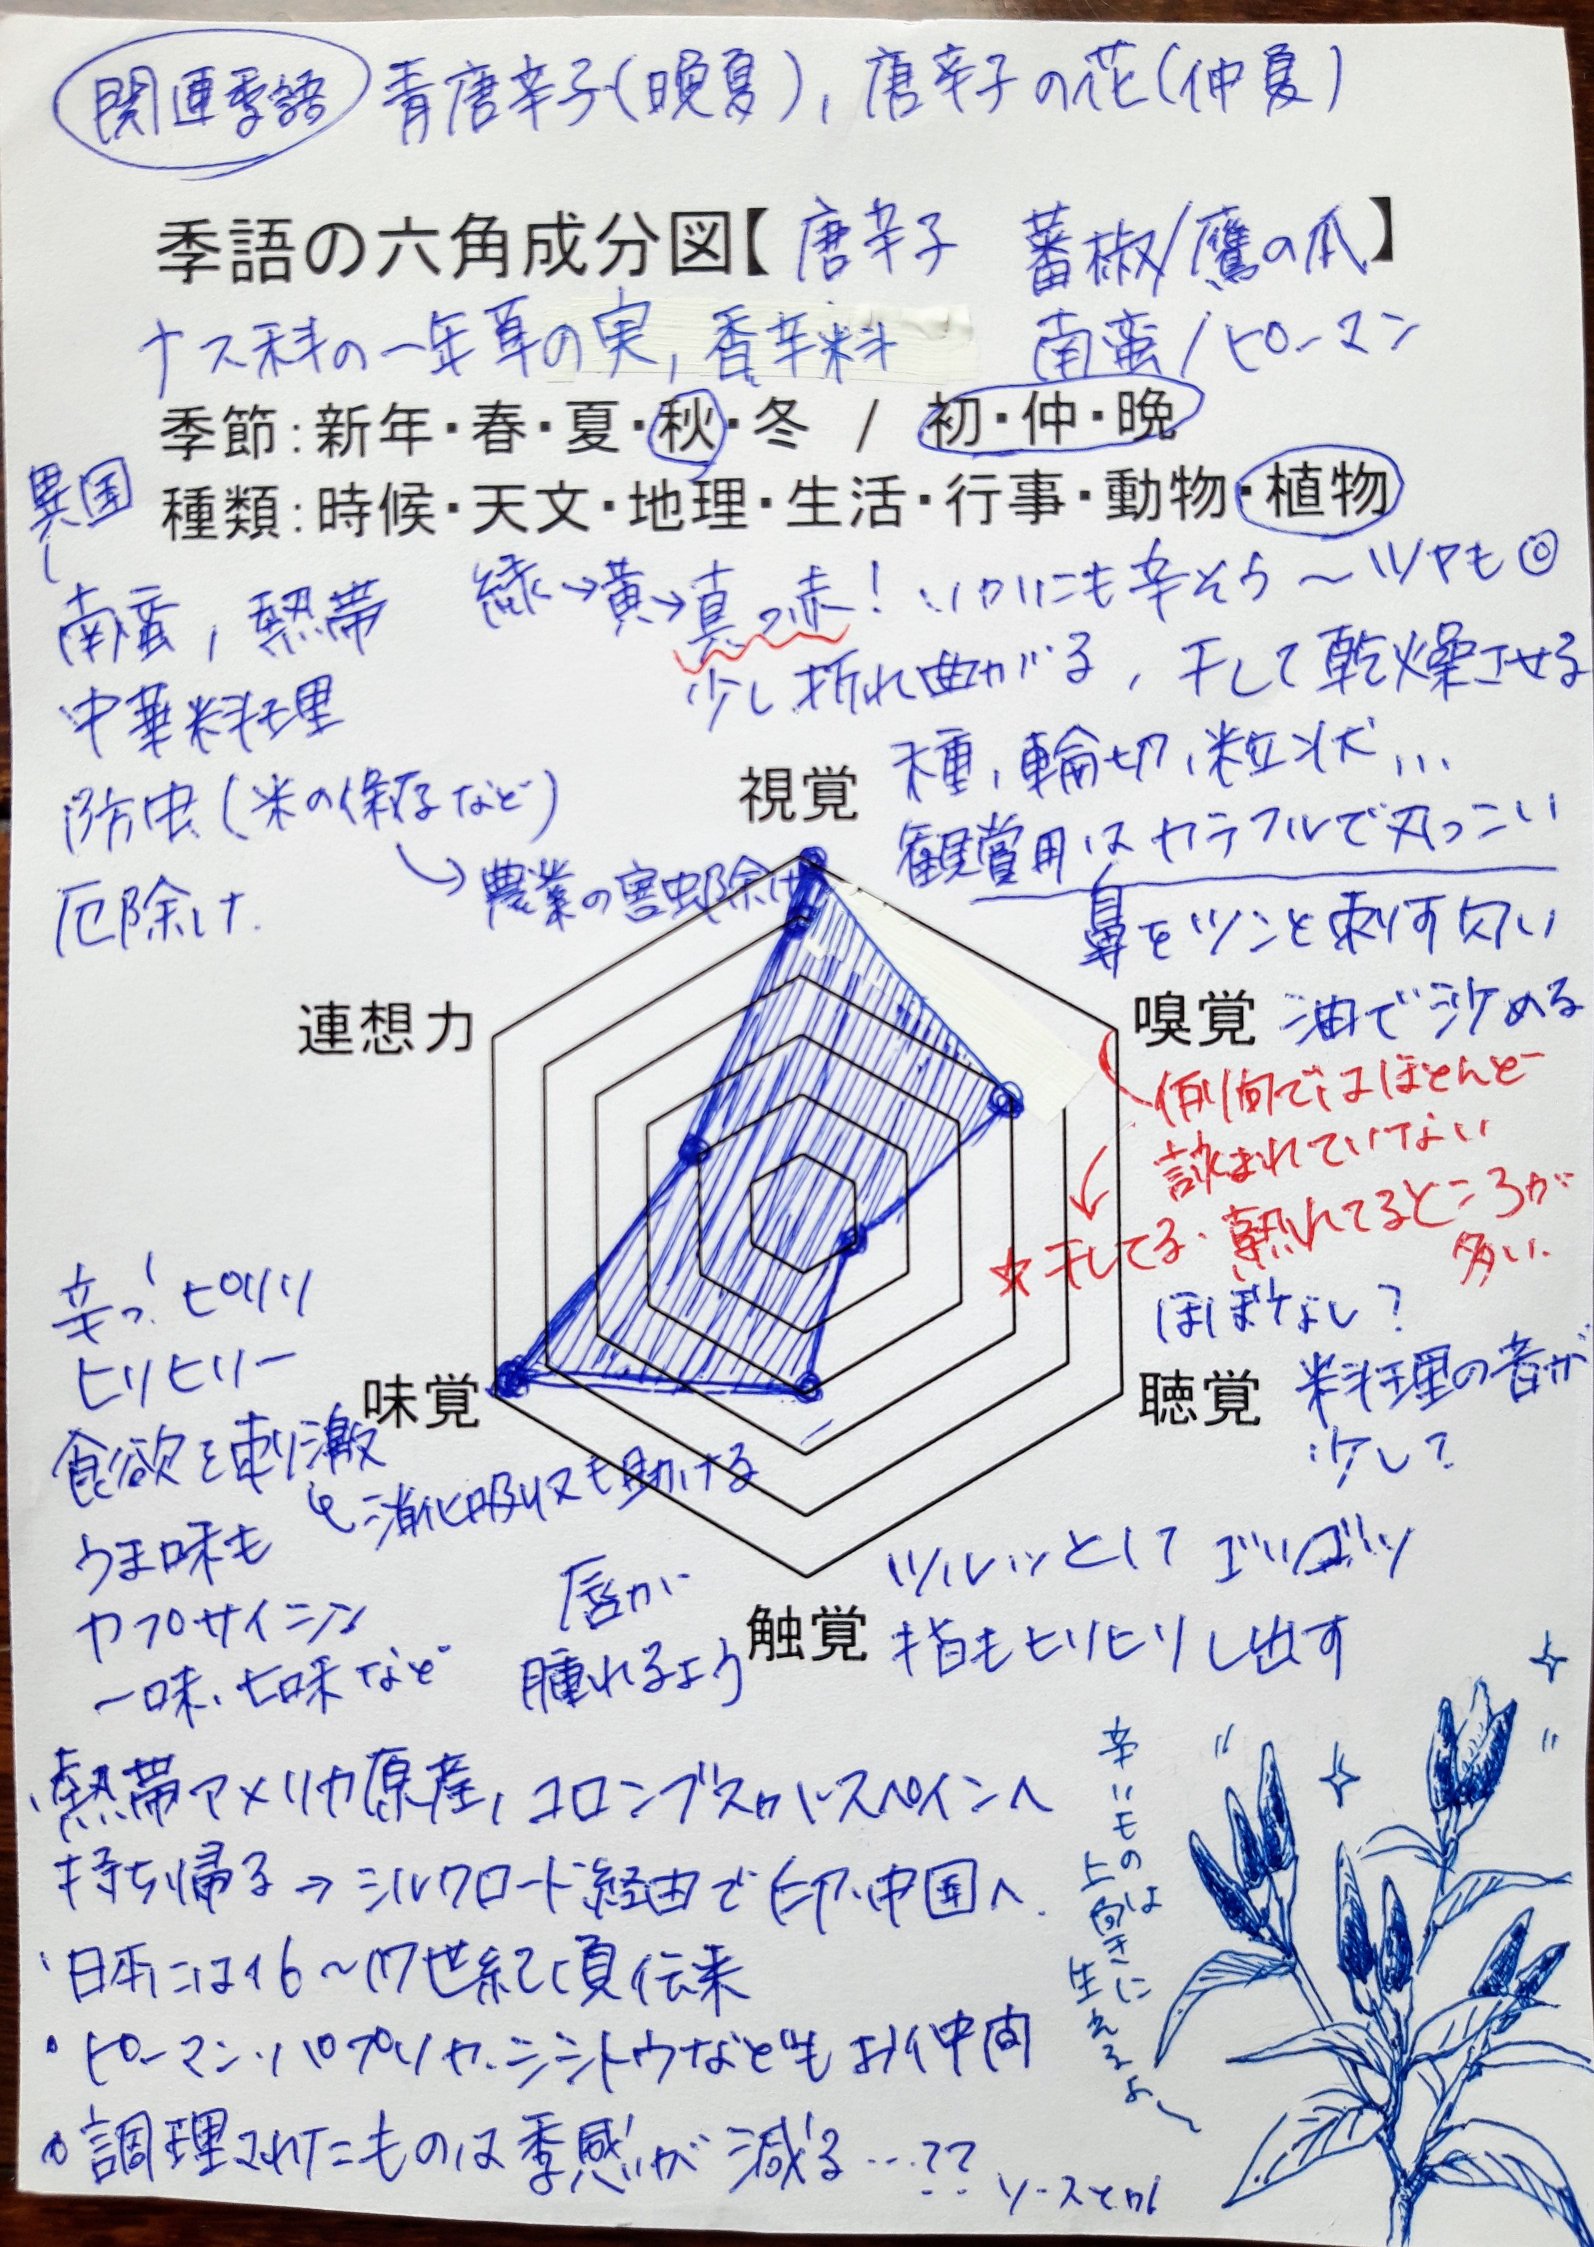 関連季語 青唐辛子(晩夏), 唐辛子の花(仲夏)
季語の六角成分図【唐辛子 蕃椒/鷹の爪】
ナス科の一年草の実, 香辛料 南蛮/ピーマン
季節:新年・春・夏・秋・冬 / 初・仲・晩
種類:時候・天文・地理・生活・行事・動物・植物
異国
南蛮, 熱帯
中華料理
防虫(米の保存など)
→農業の害虫除け
厄除け
緑→黄→真っ赤! いかにも辛そう〜ツヤも◎
少し折れ曲がる, 干して乾燥させる
種, 輪切, 粒状...
観賞用はカラフルで丸っこい
視覚
鼻をツンと刺す匂い
嗅覚 油で炒める
例句ではほとんど
詠まれていない
☆干してる・熟れてるところが
多い.
連想力
ほぼなし?
聴覚 料理の音が
少し?
辛っ! ピリリ
ヒリヒリー
味覚
食欲を刺激
消化吸収も助ける
うま味も
カプサイシン
一味、七味など
唇が
腫れるよう
触覚
ツルッとして ゴツゴツ
指もヒリヒリし出す
、熱帯アメリカ原産, コロンブスがスペインへ
持ち帰る→シルクロード経由で印、中国へ.
、日本には16〜17世紀頃伝来
・ピーマン・パプリカ・シシトウなどもお仲間
・調理されたものは季感が減る...?? ソースとか
辛いものは
上向きに
生えるよ〜